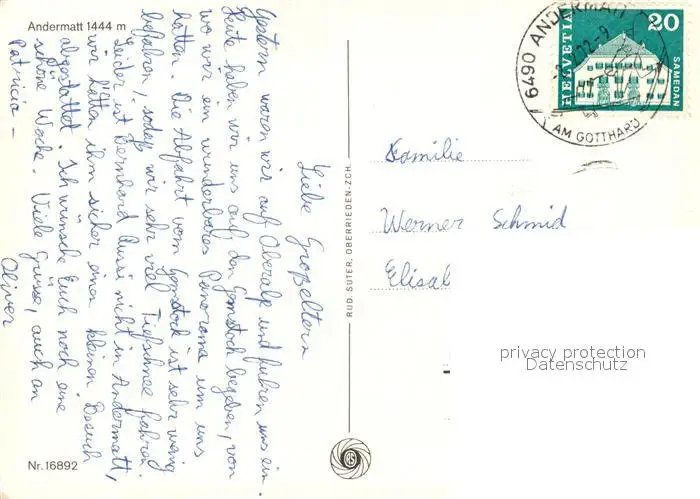 Andermatt 1444 m
Liebe Großeltern
Gestern waren wir auf Oberalp und fuhren uns ein.
Heute haben wir uns auf den Gemstock begeben, von
wo wir ein wunderbares Panorama um uns
hatten. Die Abfahrt vom Gemstock ist sehr wenig
befahren, sodass wir sehr viel Tiefschnee fahren.
Leider ist Bernhard Russi nicht in Andermatt,
wir hätten ihm sicher einen kleinen Besuch
abgestattet. Ich wünsche Euch noch eine
schöne Woche. Viele Grüsse, auch an
Patricia –
Oliver
Nr. 16892
RUD. SUTER, OBERRIEDEN-ZCH.
6490 ANDERMATT
AM GOTTHARD
HELVETIA
20
SAMEDAN
Familie
Werner Schmid
Elisab
privacy protection
Datenschutz